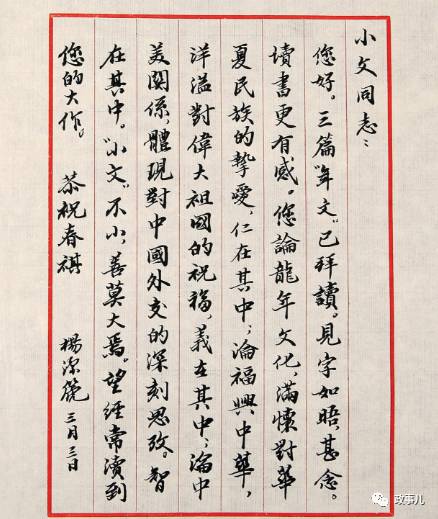 小文同志：
您好。三篇“年文”已拜讀。見字如晤，甚念。
讀書更有感。您論龍年文化，滿懷對華
夏民族的摯愛，仁在其中；論福興中華，
洋溢對偉大祖國的祝福，義在其中；論中
美關係，體現對中國外交的深刻思考。智
在其中。“小文”不小，善莫大焉。望經常讀到
您的大作。 恭祝春祺 楊潔篪 三月三日
政事儿